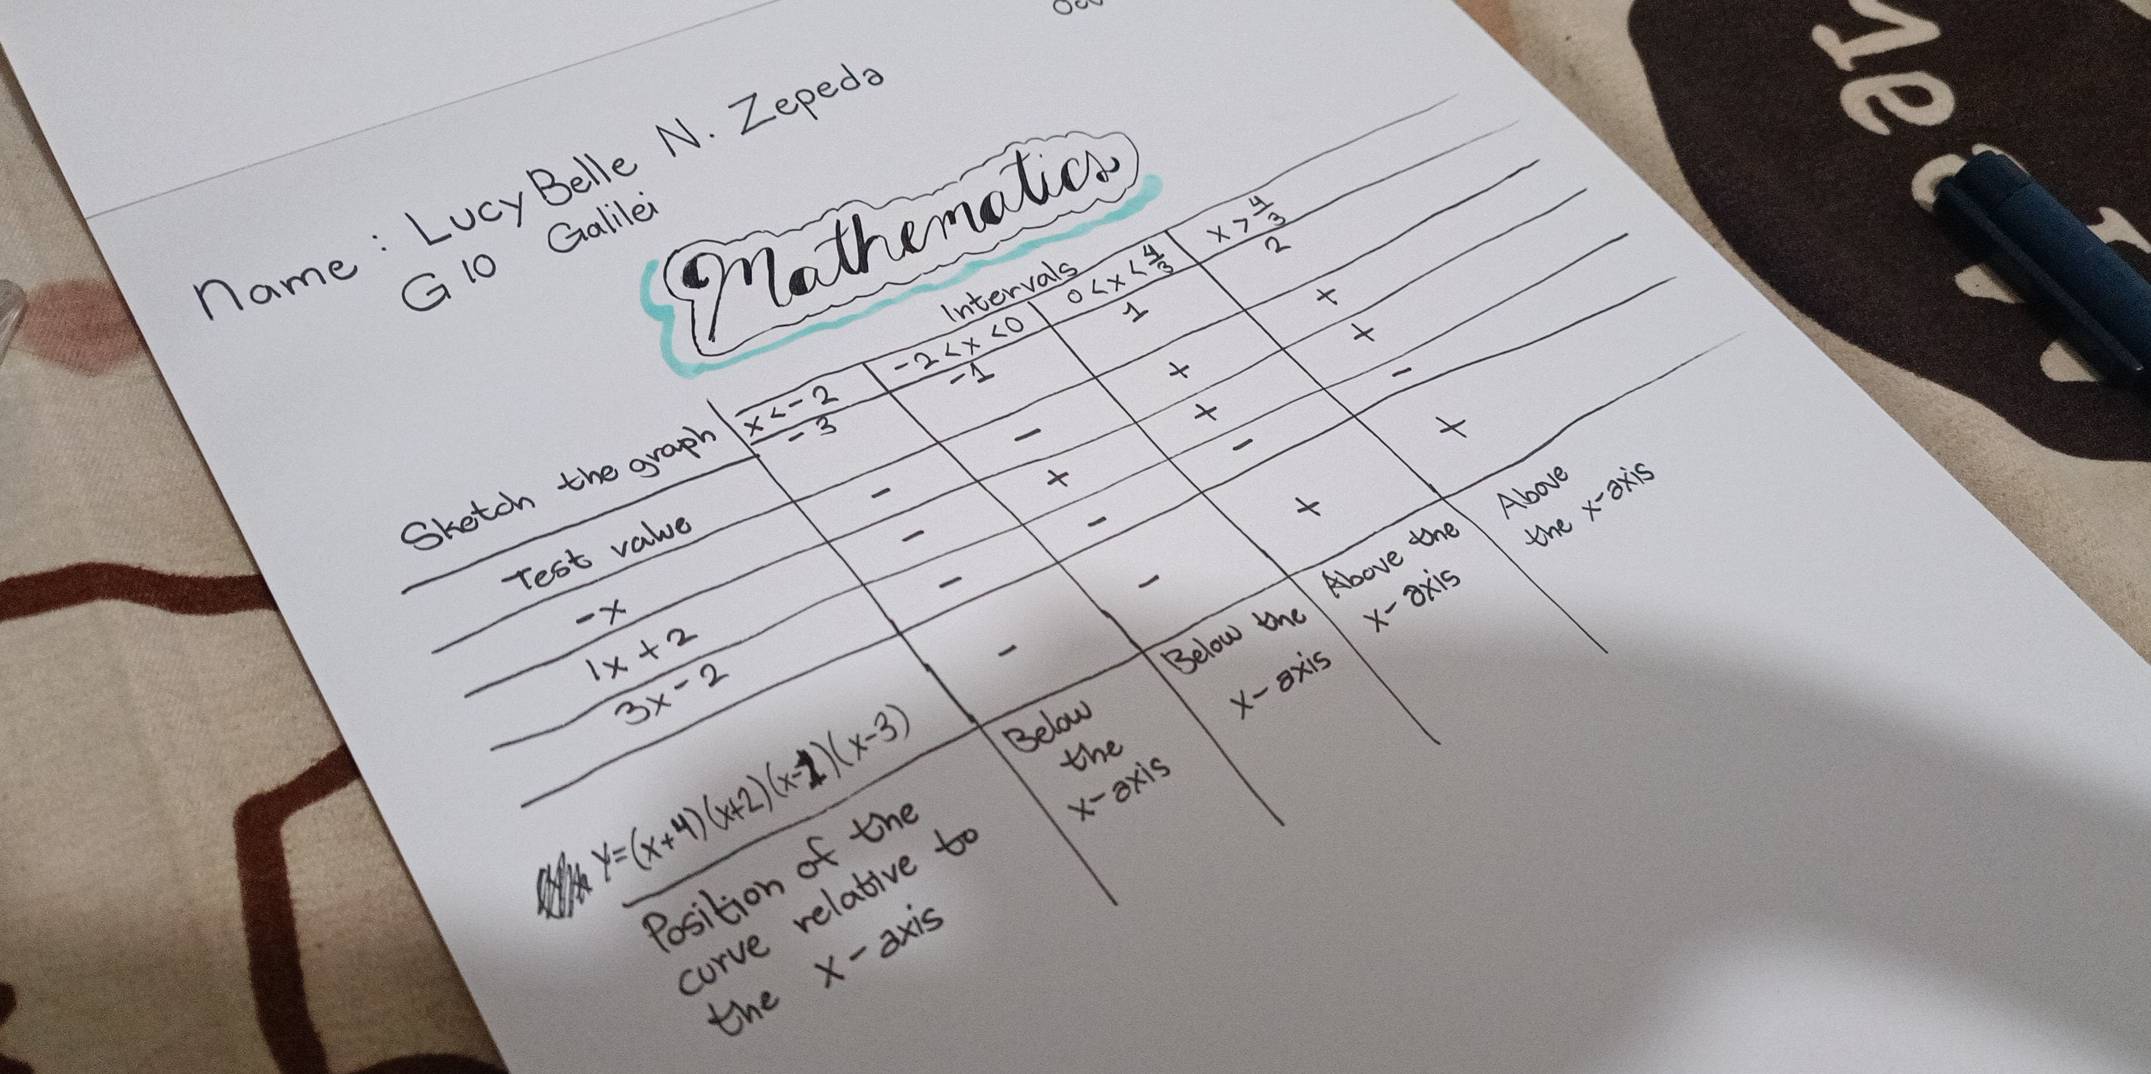 Name: LucyBelle N. Zepeda
G 10 Galilei
Mathematics
Intervals
Sketch the graph x<-2 -2<x<0 0<x<4/3 x>4/3
Test value -3 -1 1 2
-x - - + +
1x+2 - + + +
3x-2 - - - -
y=(x+4)(x+2)(x-1)(x-3) - - + +
Position of the curve relative to the x-axis
Below the x-axis
Below the x-axis
Above the x-axis
Above the x-axis